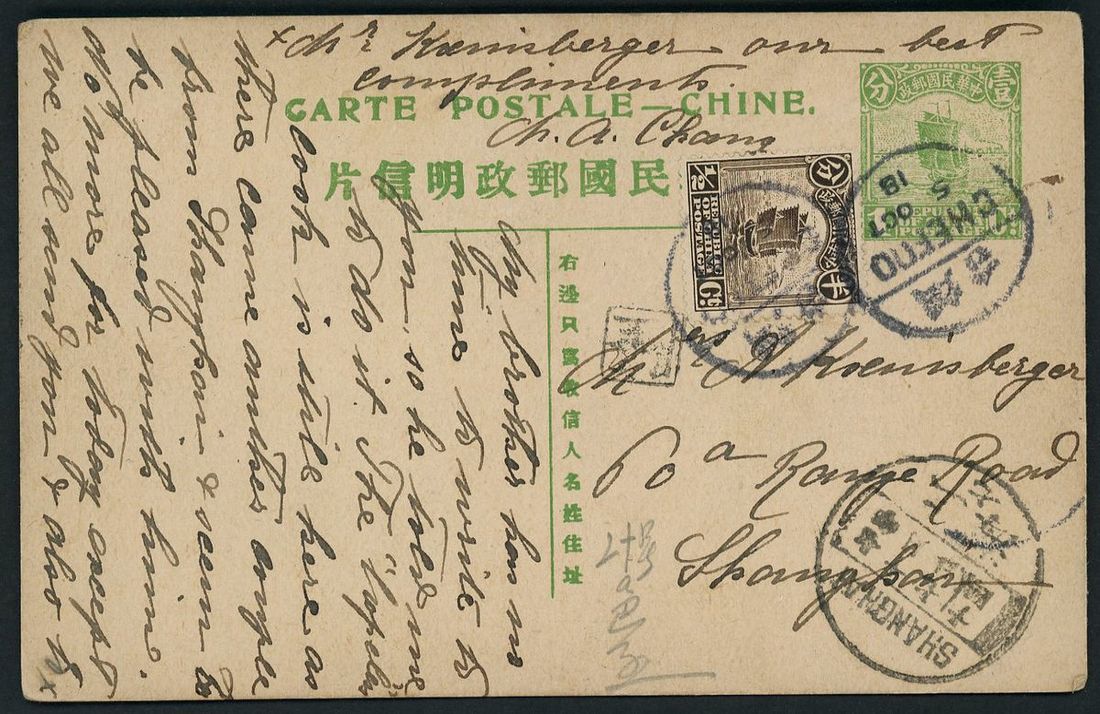 My brother has no
time to write to
you, so he told me
to do it. The
cook is still here as
there came another couple
from Shanghai & seem to
be pleased with him.
No more for today except
we all send you & also to x
x Mr Koemsberger our best
compliments.
Ch. A. Chang
CARTE POSTALE—CHINE.
民國郵政明信片
右邊只寫收信人名姓住址
中華民國郵政
壹
分
半
分
1/2
REPUBLIC
OF CHINA
POSTAGE
Ct.
5
OCT
18
A. Koemsberger
60 a Range Road
Shanghai
SHANGHAI